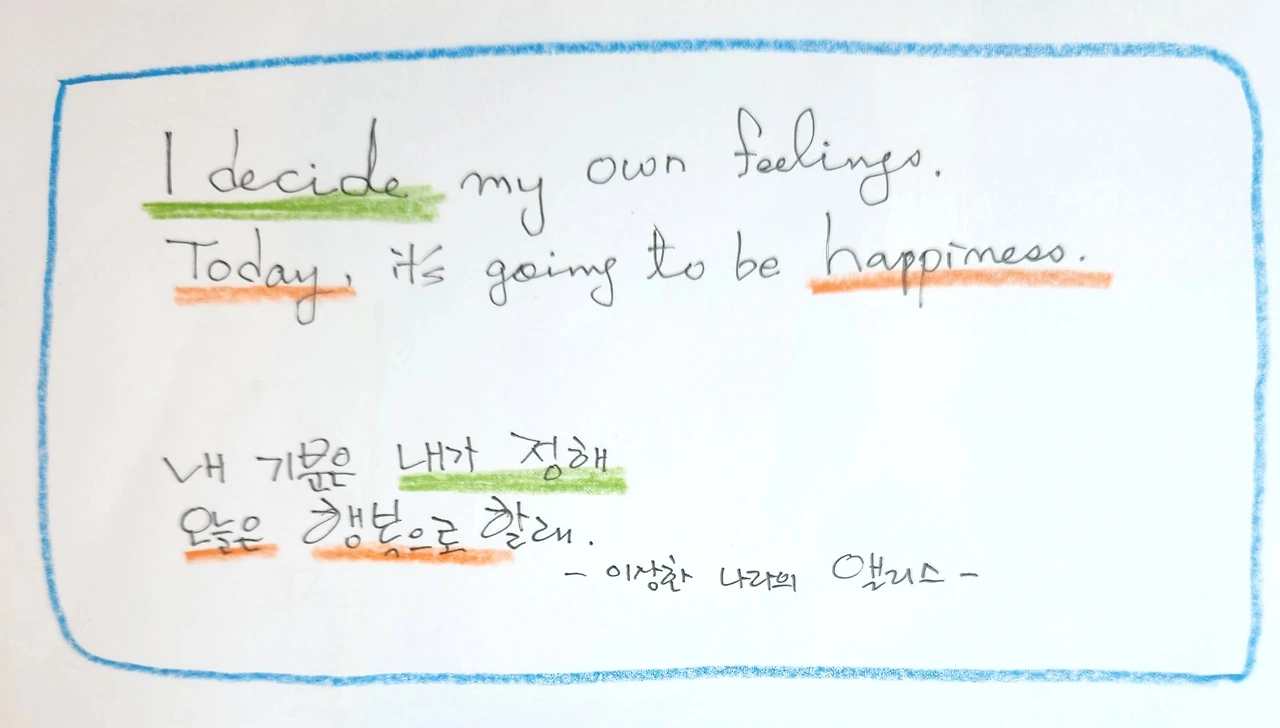 I decide my own feelings.
Today, it's going to be happiness.
내 기분은 내가 정해
오늘은 행복으로 할래.
- 이상한 나라의 앨리스 -